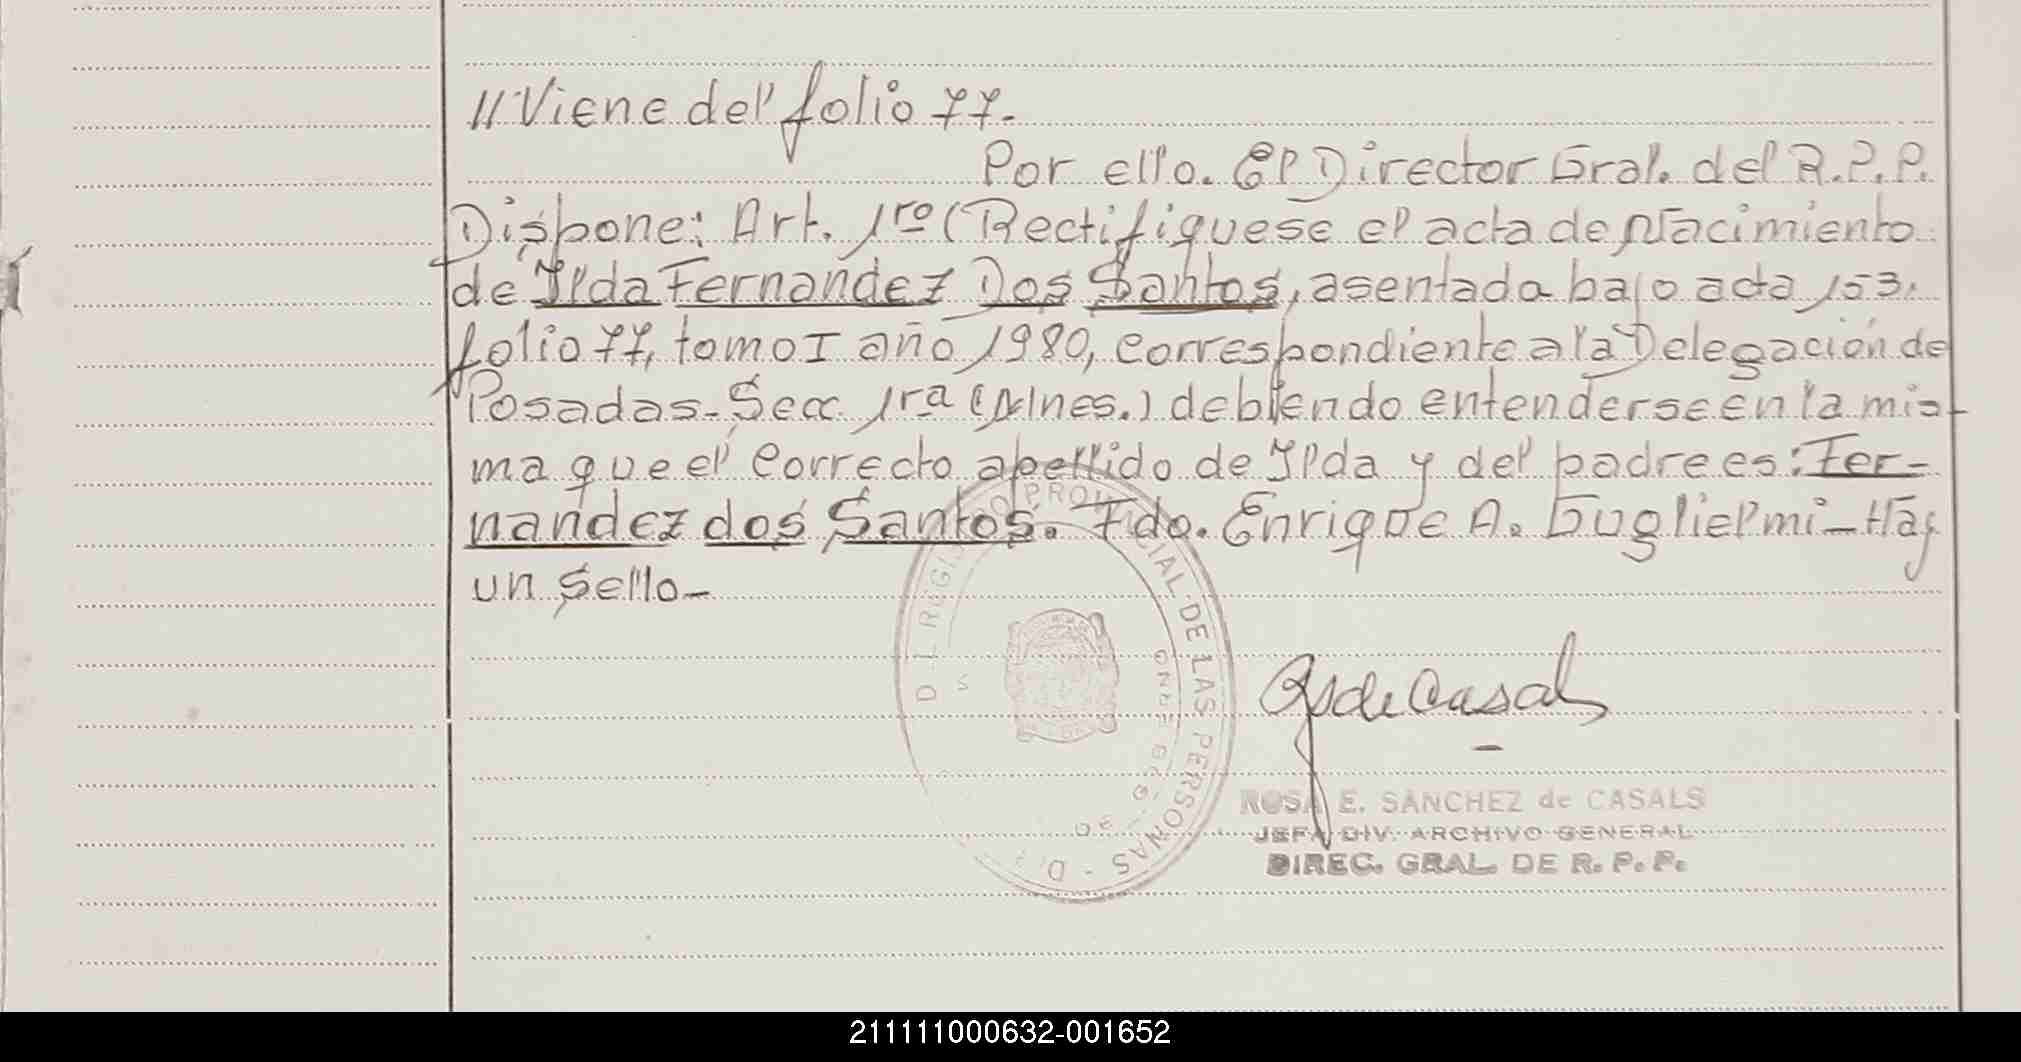 //Viene del folio 77.-
Por ello. El Director Gral. del R.P.P.
Dispone: Art. 1ro (Rectifiquese el acta de Nacimiento
de Ilda Fernandez Dos Santos, asentada bajo acta 153.
folio 77, tomo I año 1980, correspondiente a la Delegación de
Posadas- Secc. 1ra (Mnes.) debiendo entenderse en la mis-
ma que el correcto apellido de Ilda y del padre es: Fer-
nandez dos Santos. Fdo. Enrique A. Guglielmi - Hay
un sello-
PROVINCIAL DE LAS PERSONAS
RS de Casals
ROSA E. SANCHEZ de CASALS
JEFA DIV. ARCHIVO GENERAL
DIREC. GRAL. DE R. P. P.
211111000632-001652